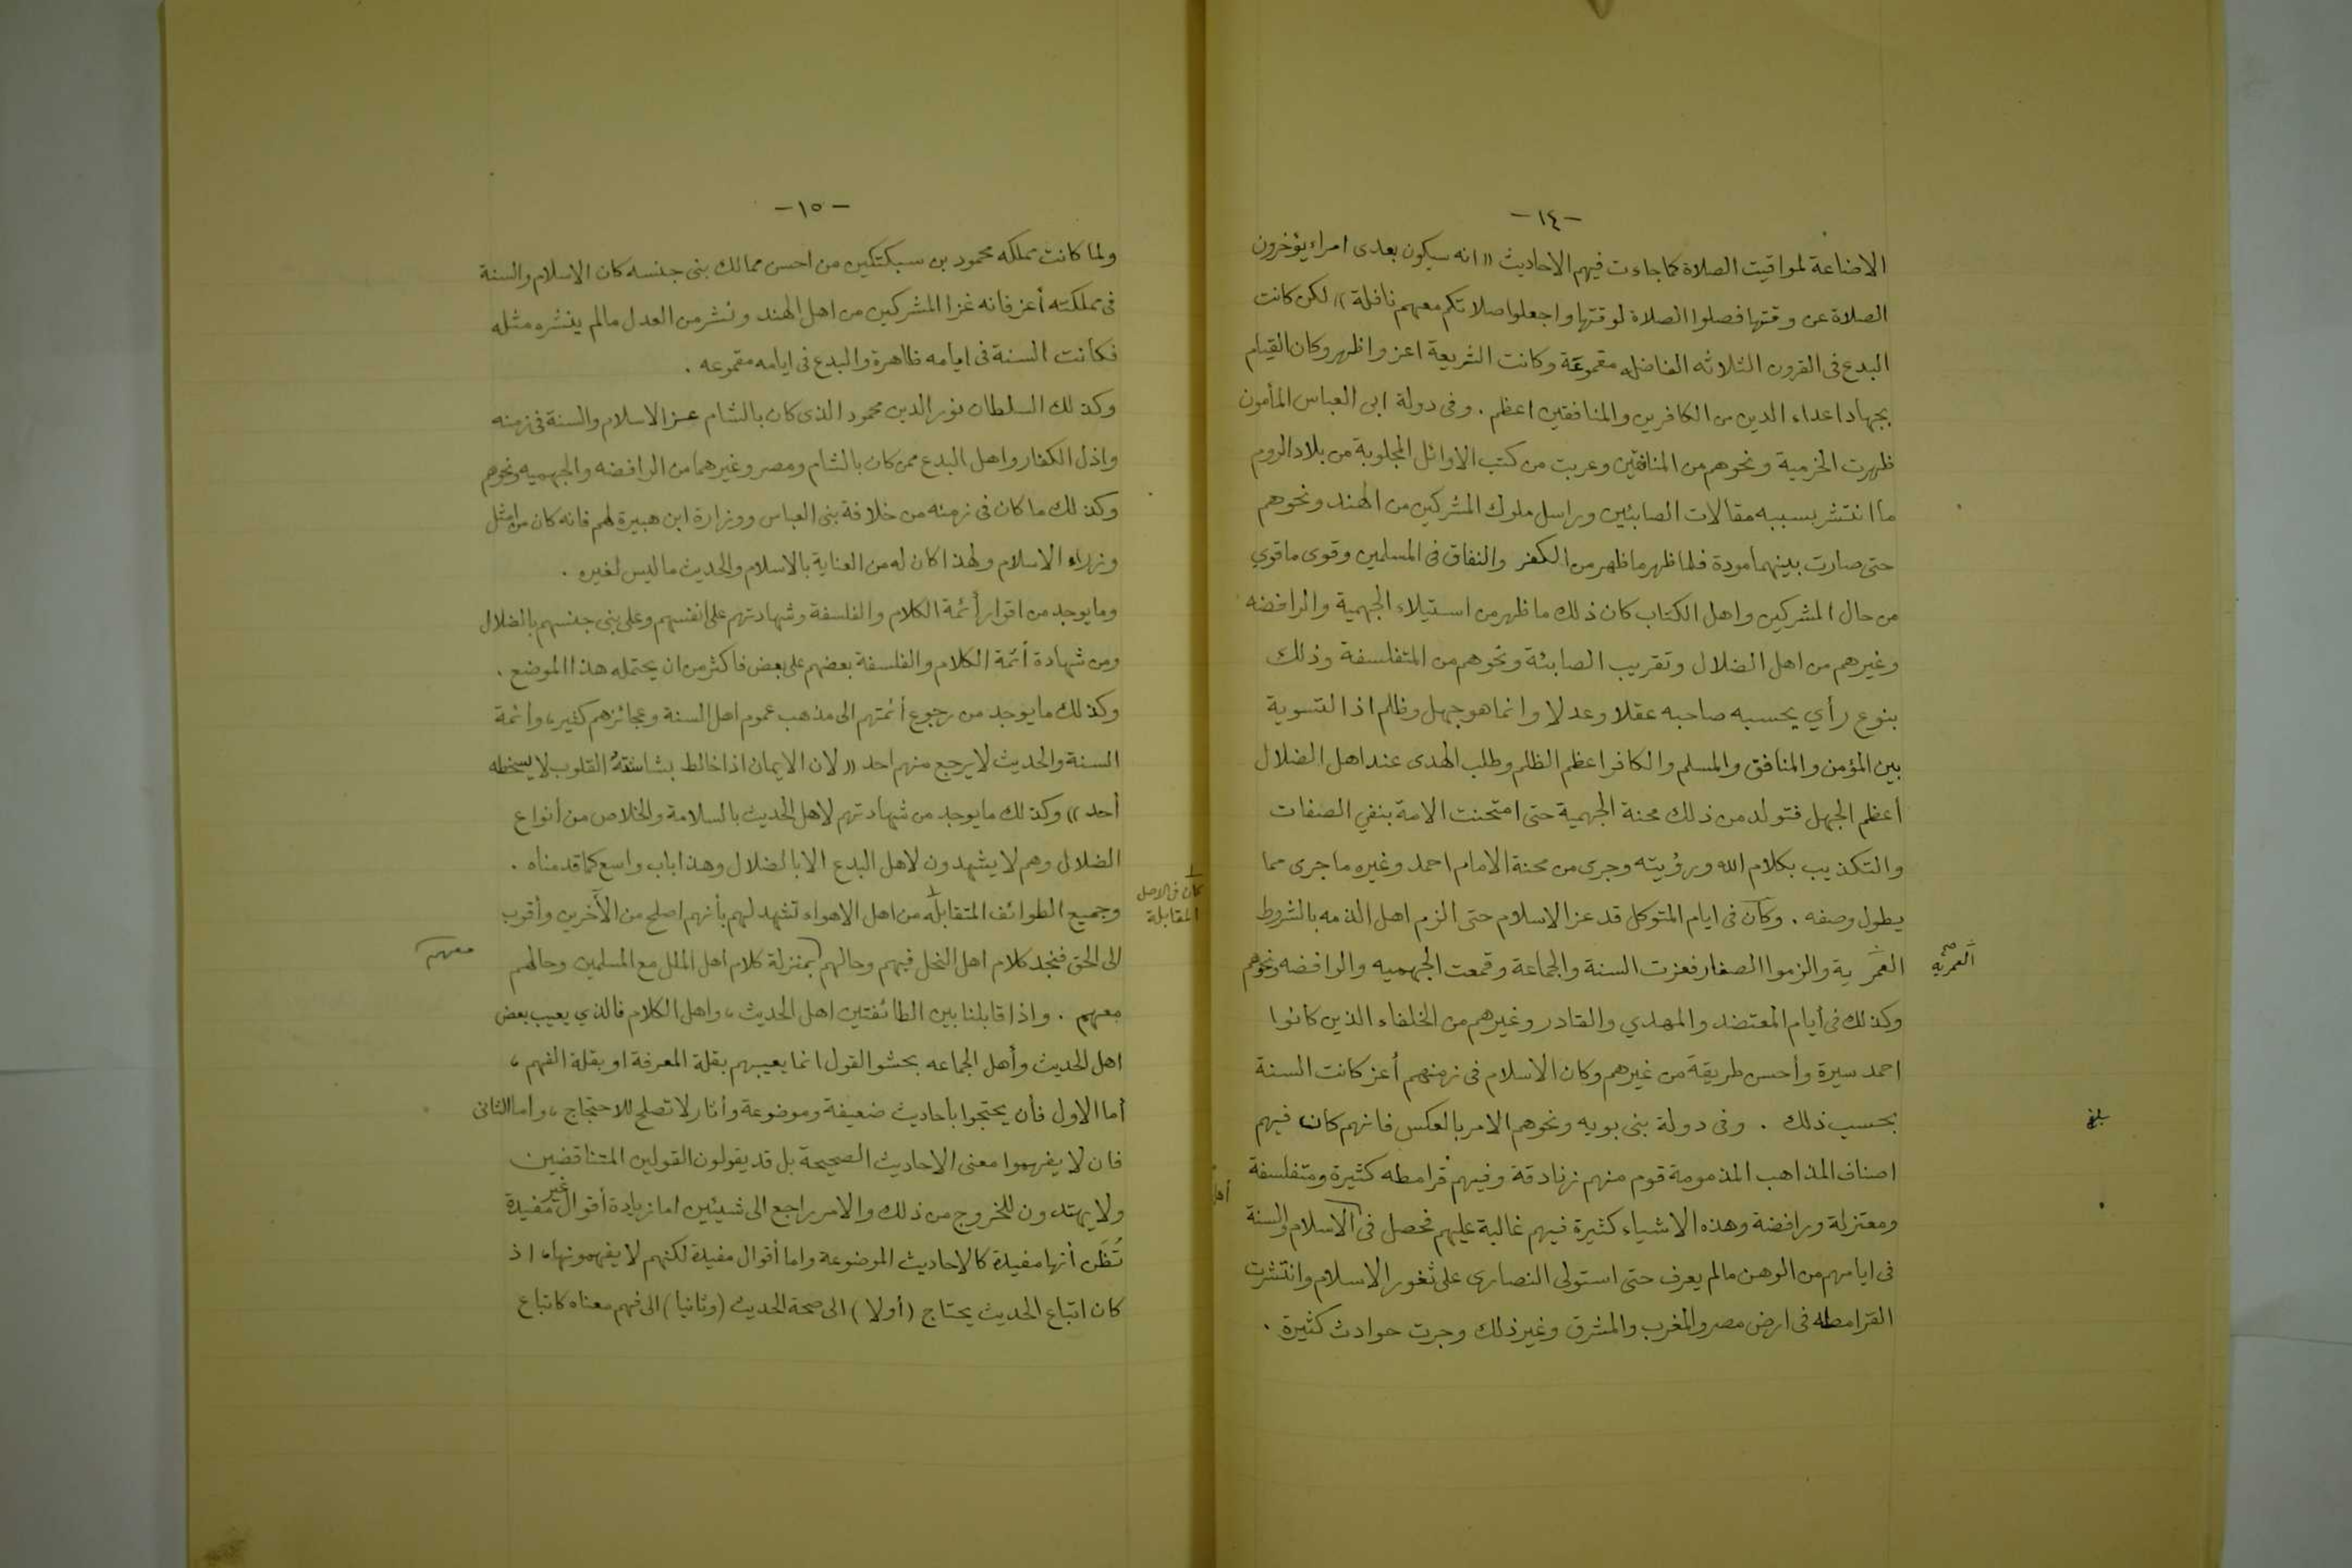 -١٤-
الاضاعة لمواقيت الصلاة كما جاءت فيهم الاحاديث «انه سيكون بعدى امراء يؤخرون
الصلاة عن وقتها فصلوا الصلاة لوقتها واجعلوا صلاتكم معهم نافلة» لكن كانت
البدع فى القرون الثلاثه الفاضله مقموعة وكانت الشريعة اعز واظهر وكان القيام
بجهاد اعداء الدين من الكافرين والمنافقين اعظم . وفى دولة ابى العباس المأمون
ظهرت الخزمية ونحوهم من المنافقين وعربت من كتب الاوائل المجلوبة من بلاد الروم
ما انتشر بسببه مقالات الصابئين وراسل ملوك المشركين من الهند ونحوهم
حتى صارت بينهما مودة فلما ظهر ما ظهر من الكفر والنفاق فى المسلمين وقوى ما قوي
من حال المشركين واهل الكتاب كان ذلك ما ظهر من استيلاء الجهمية والرافضه
وغيرهم من اهل الضلال وتقريب الصابئة ونحوهم من المتفلسفة وذلك
بنوع رأي يحسبه صاحبه عقلا وعدلا وانما هو جهل وظلم اذ التسوية
بين المؤمن والمنافق والمسلم والكافر اعظم الظلم وطلب الهدى عند اهل الضلال
أعظم الجهل فتولد من ذلك محنة الجهمية حتى امتحنت الامة بنفي الصفات
والتكذيب بكلام الله ورؤيته وجرى من محنة الامام احمد وغيره ما جرى مما
يطول وصفه . وكان فى ايام المتوكل قد عز الاسلام حتى الزم اهل الذمه بالشروط
العمرية والزموا الصغار فعزت السنة والجماعة وقمعت الجهميه والرافضه ونحوهم
العمريه
وكذلك فى أيام المعتضد والمهدي والقادر وغيرهم من الخلفاء الذين كانوا
احمد سيرة وأحسن طريقة من غيرهم وكان الاسلام فى زمنهم أعز كانت السنة
بحسب ذلك . وفى دولة بنى بويه ونحوهم الامر بالعكس فانهم كان فيهم
بلغ
اصناف المذاهب المذمومة قوم منهم زنادقة وفيهم قرامطه كثيرة ومتفلسفة
ومعتزلة ورافضة وهذه الاشياء كثيرة فيهم غالبة عليهم فحصل فى الاسلام والسنة
أهل
فى ايامهم من الوهن ما لم يعرف حتى استولى النصارى على ثغور الاسلام وانتشرت
القرامطه فى ارض مصر والمغرب والمشرق وغير ذلك وجرت حوادث كثيرة .
-١٥-
ولما كانت مملكه محمود بن سبكتكين من احسن ممالك بنى جنسه كان الاسلام والسنة
فى مملكته أعز فانه غزا المشركين من اهل الهند ونشر من العدل ما لم ينشره مثله
فكانت السنة فى ايامه ظاهرة والبدع فى ايامه مقموعه .
وكذلك السلطان نور الدين محمود الذى كان بالشام عز الاسلام والسنة فى زمنه
واذل الكفار واهل البدع ممن كان بالشام ومصر وغيرهما من الرافضه والجهميه ونحوهم
وكذلك ما كان فى زمنه من خلافة بنى العباس ووزارة ابن هبيرة لهم فانه كان من امثل
وزراء الاسلام ولهذا كان له من العناية بالاسلام والحديث ما ليس لغيره .
وما يوجد من اقرار أئمة الكلام والفلسفة وشهادتهم على انفسهم وعلى بنى جنسهم بالضلال
ومن شهادة أئمة الكلام والفلسفة بعضهم على بعض فاكثر من ان يحتمله هذا الموضع .
وكذلك ما يوجد من رجوع أئمتهم الى مذهب عموم اهل السنة وعجائزهم كثير، وائمة
السنة والحديث لا يرجع منهم احد «لان الايمان اذا خالط بشاشته القلوب لا يسخطه
أحد» وكذلك ما يوجد من شهادتهم لاهل الحديث بالسلامة والخلاص من انواع
الضلال وهم لا يشهدون لاهل البدع الا بالضلال وهذا باب واسع كما قدمناه .
وجميع الطوائف المتقابلة١ من اهل الاهواء تشهد لهم بأنهم اصلح من الآخرين وأقرب
١ كان فى الاصل المقابلة
الى الحق فنجد كلام اهل النحل فيهم وحالهم بمنزلة كلام اهل الملل مع المسلمين وحالهم
معهم
معهم . واذا قابلنا بين الطائفتين اهل الحديث ، واهل الكلام فالذي يعيب بعض
اهل الحديث وأهل الجماعه بحشو القول انما يعيبهم بقلة المعرفة او بقلة الفهم ،
أما الاول فأن يحتجوا بأحاديث ضعيفة وموضوعة وأثار لا تصلح للاحتجاج ، واما الثانى
فان لا يفهموا معنى الاحاديث الصحيحة بل قد يقولون القولين المتناقضين
ولا يهتدون للخروج من ذلك والامر راجع الى شيئين اما زيادة أقوال غير مفيدة
تُظَن أنها مفيدة كالاحاديث الموضوعة واما أقوال مفيدة لكنهم لا يفهمونها، اذ
كان اتباع الحديث يحتاج (أولا) الى صحة الحديث (وثانيا) الى فهم معناه كاتباع